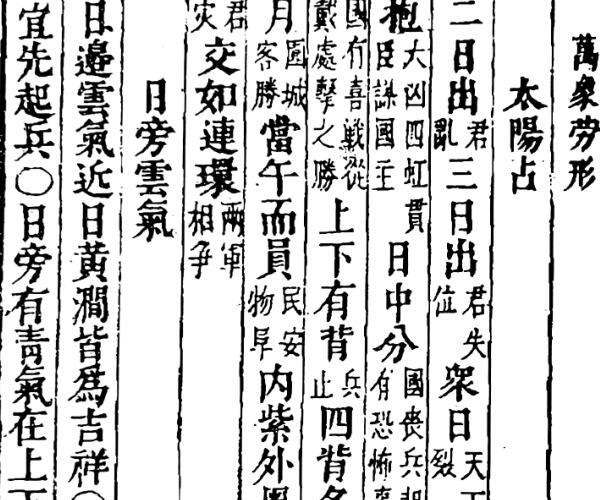 萬衆勞形
太陽占
二日出君亂三日出君失位衆日天下裂
抱大凶四虹貫臣謀國主日中分國喪兵起有恐怖
國有喜戰從戴處擊之勝上下有背兵止四背
月圍城客勝當午而員民安物阜内紫外
君災交如連環兩軍相爭
日旁雲氣
日邉雲氣近日黃潤皆爲吉祥○
宜先起兵○日旁有靑氣在上